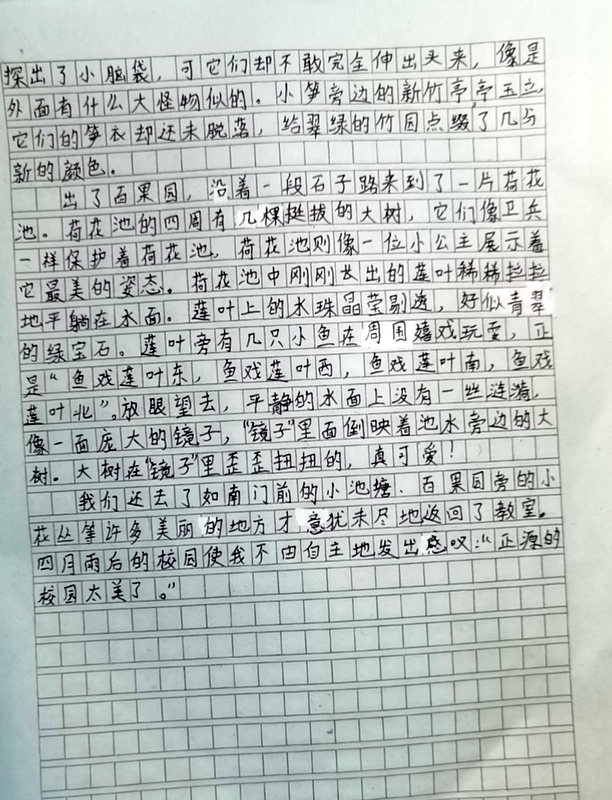 探出了小脑袋，可它们却不敢完全伸出头来，像是
外面有什么大怪物似的。小笋旁边的新竹亭亭玉立，
它们的笋衣却还未脱落，给翠绿的竹园点缀了几分
新的颜色。
出了百果园，沿着一段石子路来到了一片荷花
池。荷花池的四周有几棵挺拔的大树，它们像卫兵
一样保护着荷花池，荷花池则像一位小公主展示着
它最美的姿态。荷花池中刚刚长出的莲叶稀稀拉拉
地平躺在水面。莲叶上的水珠晶莹剔透，好似青翠
的绿宝石。莲叶旁有几只小鱼在周围嬉戏玩耍，正
是“鱼戏莲叶东，鱼戏莲叶西，鱼戏莲叶南，鱼戏
莲叶北”。放眼望去，平静的水面上没有一丝涟漪，
像一面庞大的镜子，“镜子”里面倒映着池水旁边的大
树。大树在“镜子”里歪歪扭扭的，真可爱！
我们还去了如南门前的小池塘、百果园旁的小
花丛等许多美丽的地方才意犹未尽地返回了教室。
四月雨后的校园使我不由自主地发出感叹：“正源的
校园太美了。”